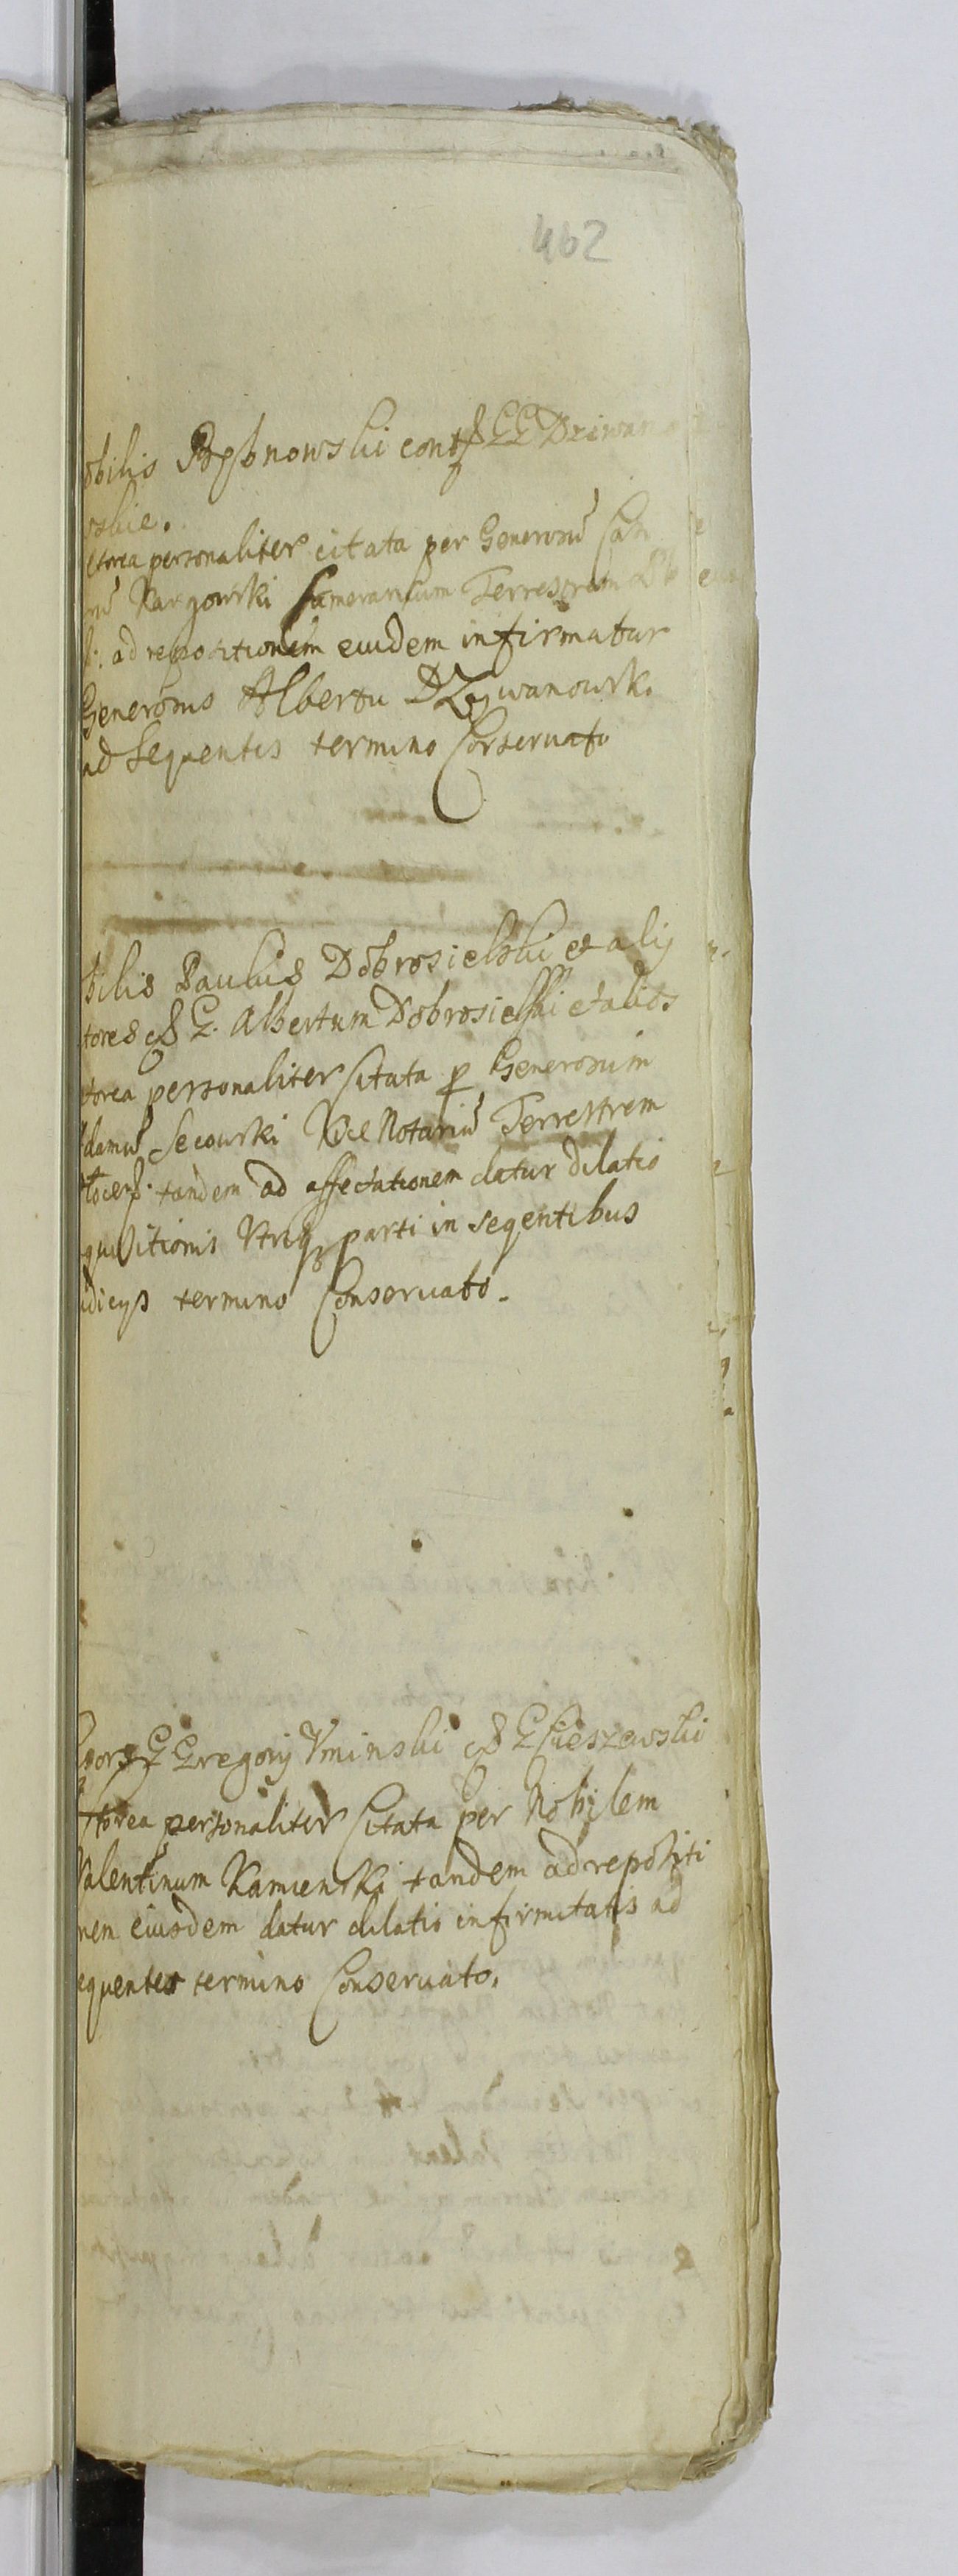 462
obilis contra GG Dziwano
wskie.
ctorea personaliter citata per Generosū
nū Kargowski Camerarium Terrestrem
ad repositionem eiusdem infirmatur
Generosus Albertu DZiwanowski
ad Sequentes termino Conseruato
bilis Paulus Dobrosielski et alij
tores G. Albertum Dobrosielski et alios
ctorea personaliter Citata p Generosum
damū Secowski Vice Notariū Terrestrem
tandem ad affectationem datur dilatio
quisitionis Vtriq parti in seqentibus
udicijs termino Conseruato.
G Gregorij Vminski G Cieszewski
ctorea personaliter Citata per Nobilem
Valentinum Kamienski tandem ad repositi
nem eiusdem datur dilatio infirmitatis ad
equentes termino Conseruato.